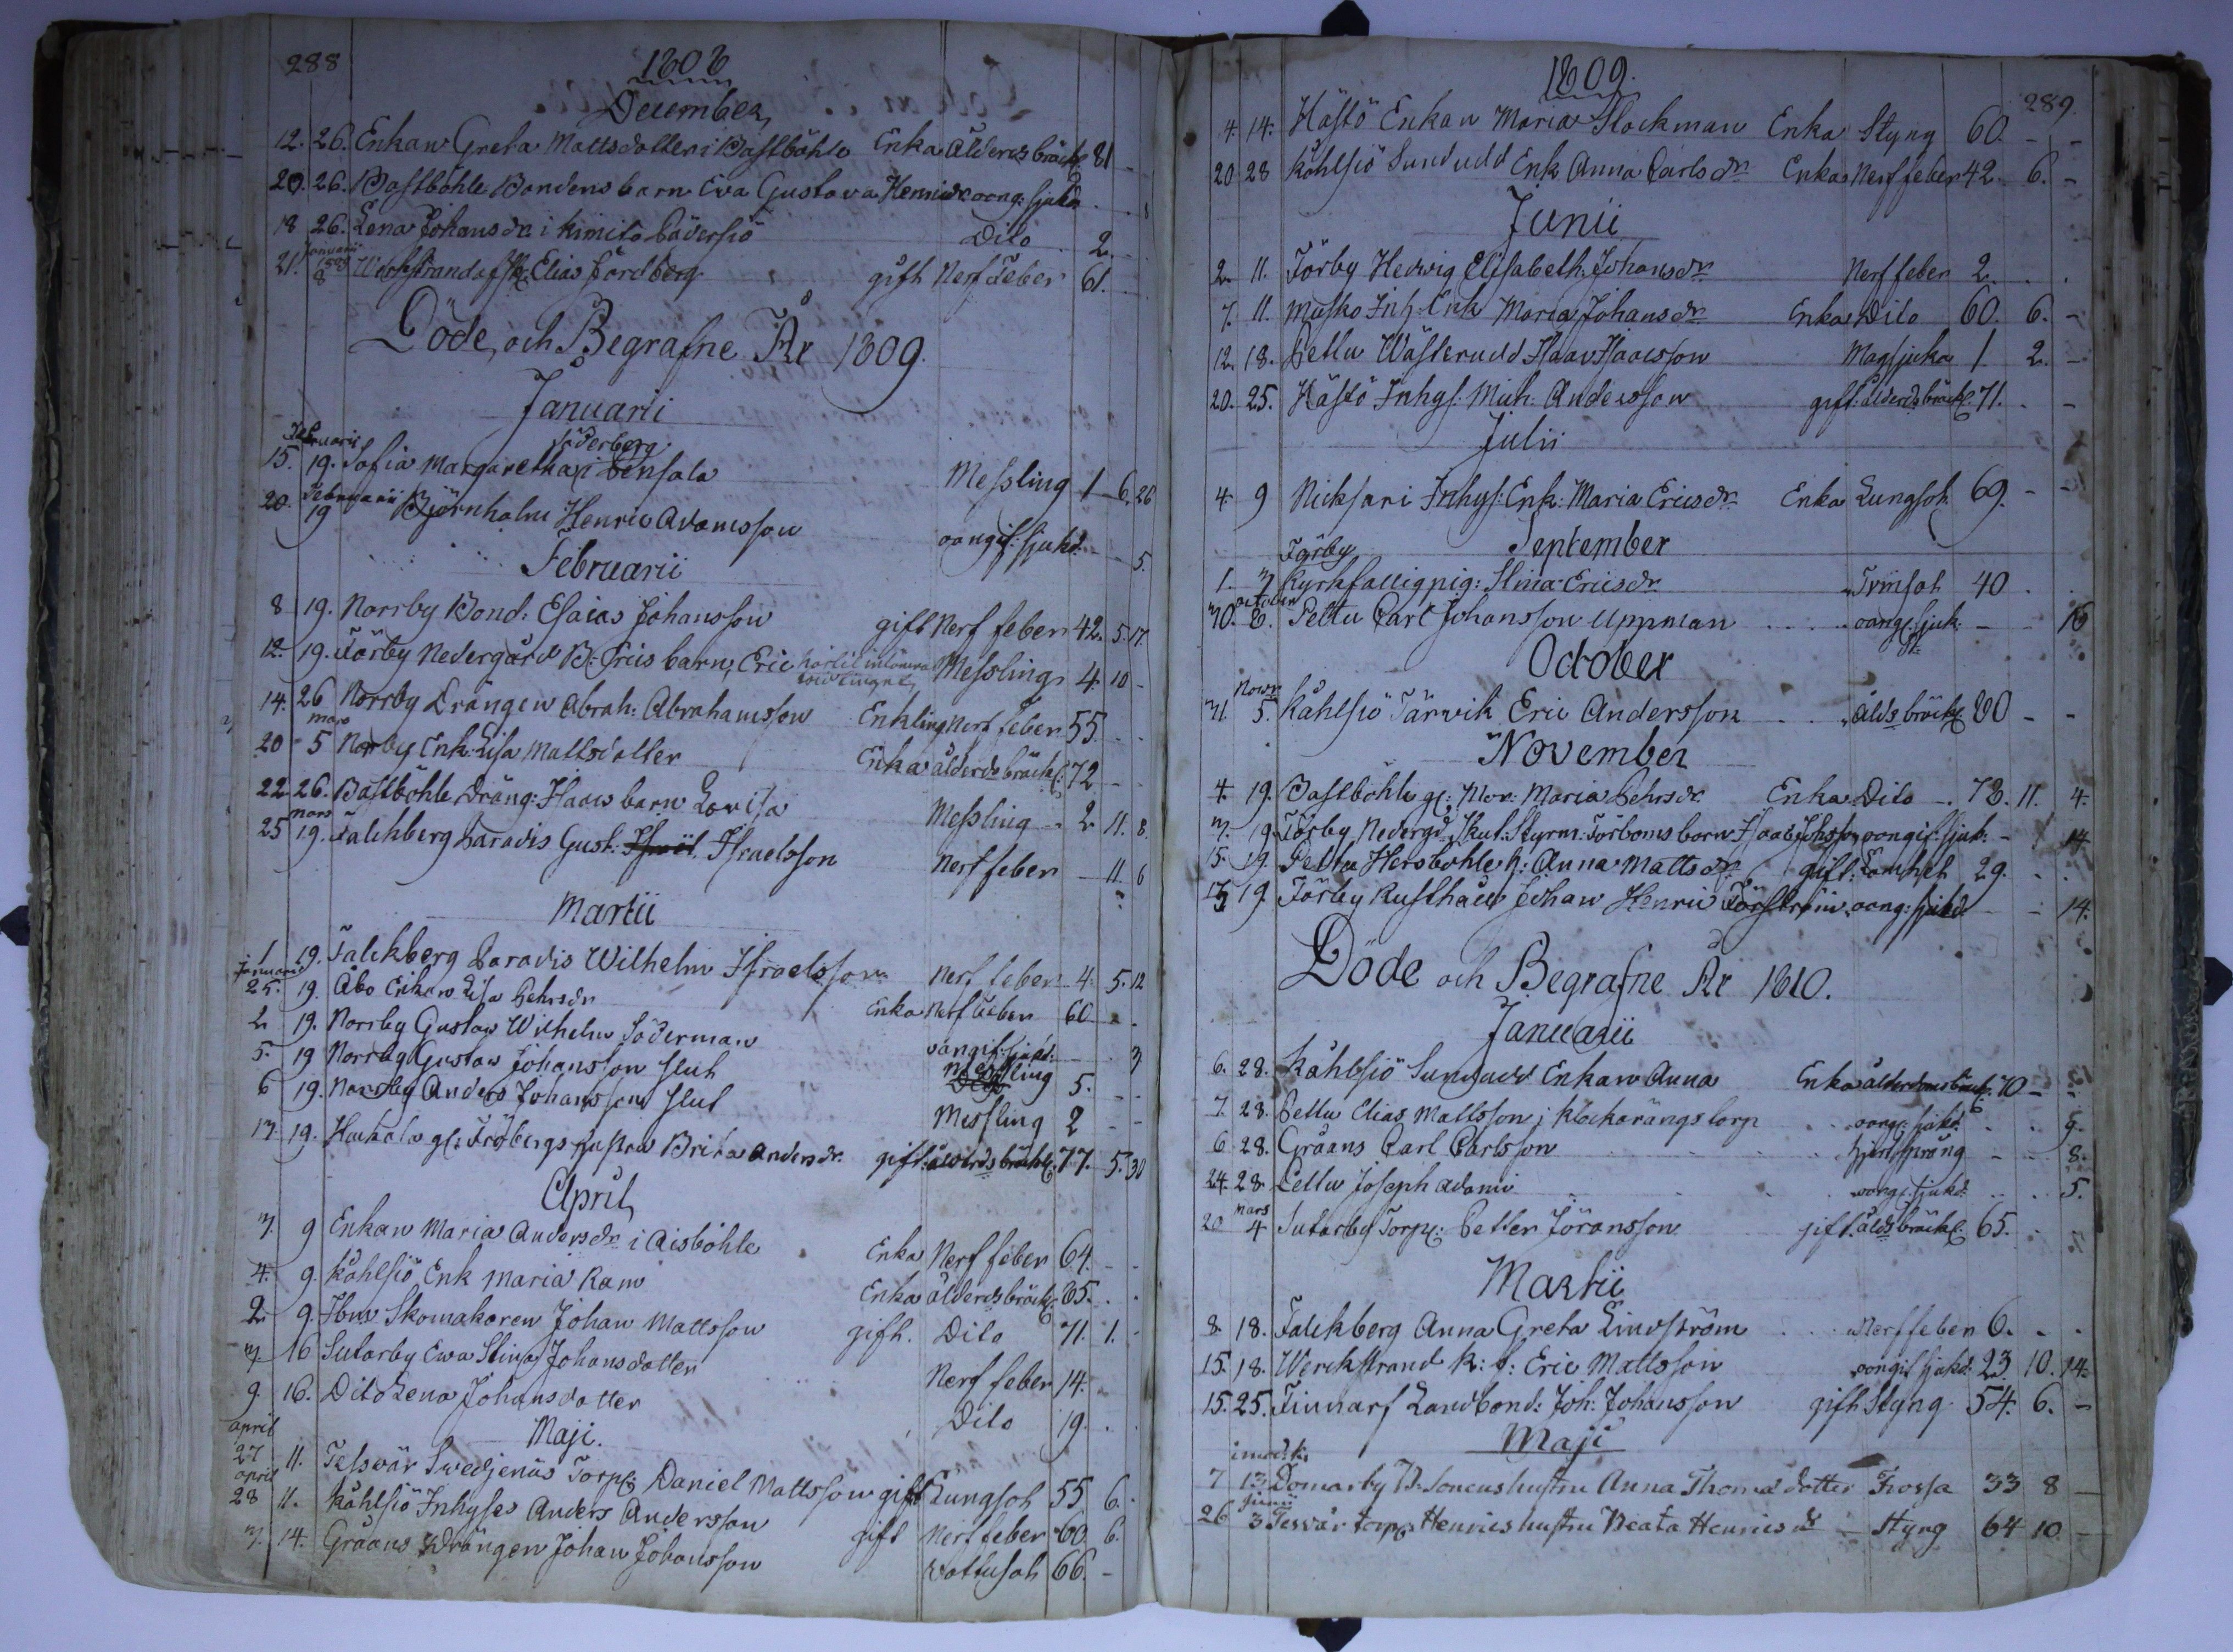 288
1808
December
12. 26. Enkan Greta Mattsdotter i Bastböhle Enka Ålderdsbräckl 81 -
20. 26. Bastböhle Bondens barn Eva Gustava Henricdr oang: sjukd - - 8
18 26. Lena Johansdr i Kimito Dito 2. -
21. Januarii 1809 8 Elias Nordberg gift Nerf Feber 61. -
Döde och Begrafne År 1809.
Januarii
15. Februarii 19. Sofia Margaretha Söderberg i Pensala Messling 1 6. 26
20. Februarii 19 Björnholm Henric Adamsson oangif: sjukd: - - 5.
Februarii
8 19. Norrby Bond: Esaias Johansson gift Nerf feber 42. 5. 17.
12. 19. Förby Nedergård B: Erics barn, Eric Messling 4. 10 -
14. 26 Norrby Drängen Abrah: Abrahamsson Enkling Nerf feber 55
20 mars 5 Norby Enk: Lisa Mattsdotter Enka ålderdsbräckl: 72 - -
22 26. Bastböhle Dräng: Isaacs barn Lovisa Messling - 2 11. 8.
25 mars 19. Falckberg Paradis Gust: Israelsson Nerf feber - 11. 6
Martii
1 19. Falckberg Paradis Wilhelm Israelsson Nerf feber 4. 5. 12
Januarii 25. 19. Åbo Enkan Lisa Pehrsdr Enka Nerf feber 60 - -
2 19. Norrby Gustav Wilhelm Söderman oangif: sjukd: - . 3
5. 19 Norrby Gustav Johansson Slut Messling 5. - -
6 19. Norrby Anders Johansson Slut Messling 2 - -
13. 19. gl: Fröbergs hustru Brita Andersdr. gift: ålderdsbräckl: 77. 5. 30
April
3. 9 Enkan Maria Andersdr i Aisböhle Enka Nerf feber 64. - -
4. 9. Kåhlsiö Enk Maria Ram Enka ålderdsbräckl: 85. . .
2. 9. Skomakaren Johan Mattsson gift. Dito 71. 1. -
3. 16 Sutarby Ewa Stina Johansdotter Nerf feber 14.
9. 16. Dito Lena Johansdotter Dito 19. . .
Maji.
april 27 11. Tesvär Svedjenäs Torp: Daniel Mattsson gift Lungsot 55 6.
april 28 11. Kåhlsiö Inhyses Anders Andersson gift Nerf feber 60. 6.
3. 14. Gråans Drängen Johan Johansson Vattusot 66. -
1809.
289.
4. 14. Hästö Enkan Maria Stockman Enka Styng 60. - -
20 28 Kåhlsiö Sundudd Enk Anna Carlsdr Enka Nerf feber 42. 6. -
Junii
2. 11. Förby Hedvig Elisabeth Johansdr Nerf feber 2. . .
7. 11. Masko Inh: Enk Maria Johansdr Enka Dito 60. 6. -
12. 18. Pettu Västerudd Isaac Isaacsson Magsjuka 1 2. -
20. 25. Hästö Inhys: Mich: Andersson gift: ålderdsbräckl. 71. . -
Julii
4. 9 Nicksari Inhys: Enk: Maria Ericsdr. Enka Lungsot. 69. - -
September
1. 3 Förby Kyrkfattig pig: Stina Ericsdr Trinsot 40 . .
30. october 8. Pettu Carl Johansson Uppman .... oang: sjuk: - - 16
October
31. Novr 5. Kåhlsiö Tärvik Eric Andersson ... Ålds bräckl: 80 - -
November
4. 19. Bastböhle gl: Mor: Maria Pehrsdr. Enka Dito -. 78. 11. 4.
3. 19. Förby Nedergd Skut: Styrm: Förboms barn Isaac oangif: sjuk: - 1 14.
15. 19. Pettu Hersböhle h: Anna Mattsdr. gift: Lamhet 29. . .
13 19. Förby Rusthåll Johan Henric Förström oang: sjukd: - - 14.
Döde och Begrafne År 1810.
Januarii
6. 28. Kåhlsiö Sundudd Enkan Anna Enka ålderdomsbräckl: 70 - -
7. 28. Pettu Elias Mattsson i Klockarängs torp oang: sjukd: . . 9.
6 28. Gråans Carl Carlsson ... hjertsprång - - 8.
24. 28. Pettu Joseph Adami oang: sjukd: . . 5.
20 mars 4 Sutarby Torp: Petter Jöransson gift. ålds bräckl: 65. . .
Martii
8. 18. Falckberg Anna Greta Lindström ... Nerf feber 6. . .
15. 18. Werckstrand k: f: Eric Mattsson oangif sjukd: 23 10. 14.
15. 25. Finnarf Landbond: Joh: Johansson gift Styng 54. 6. -
Maji
7 13 Domarby B: Sonens hustru Anna Thomasdotter Frossa 33 8 -
26 junii 3 Tesvär torp: Henrics hustru Beata Henricsdr - Styng 64 10. -